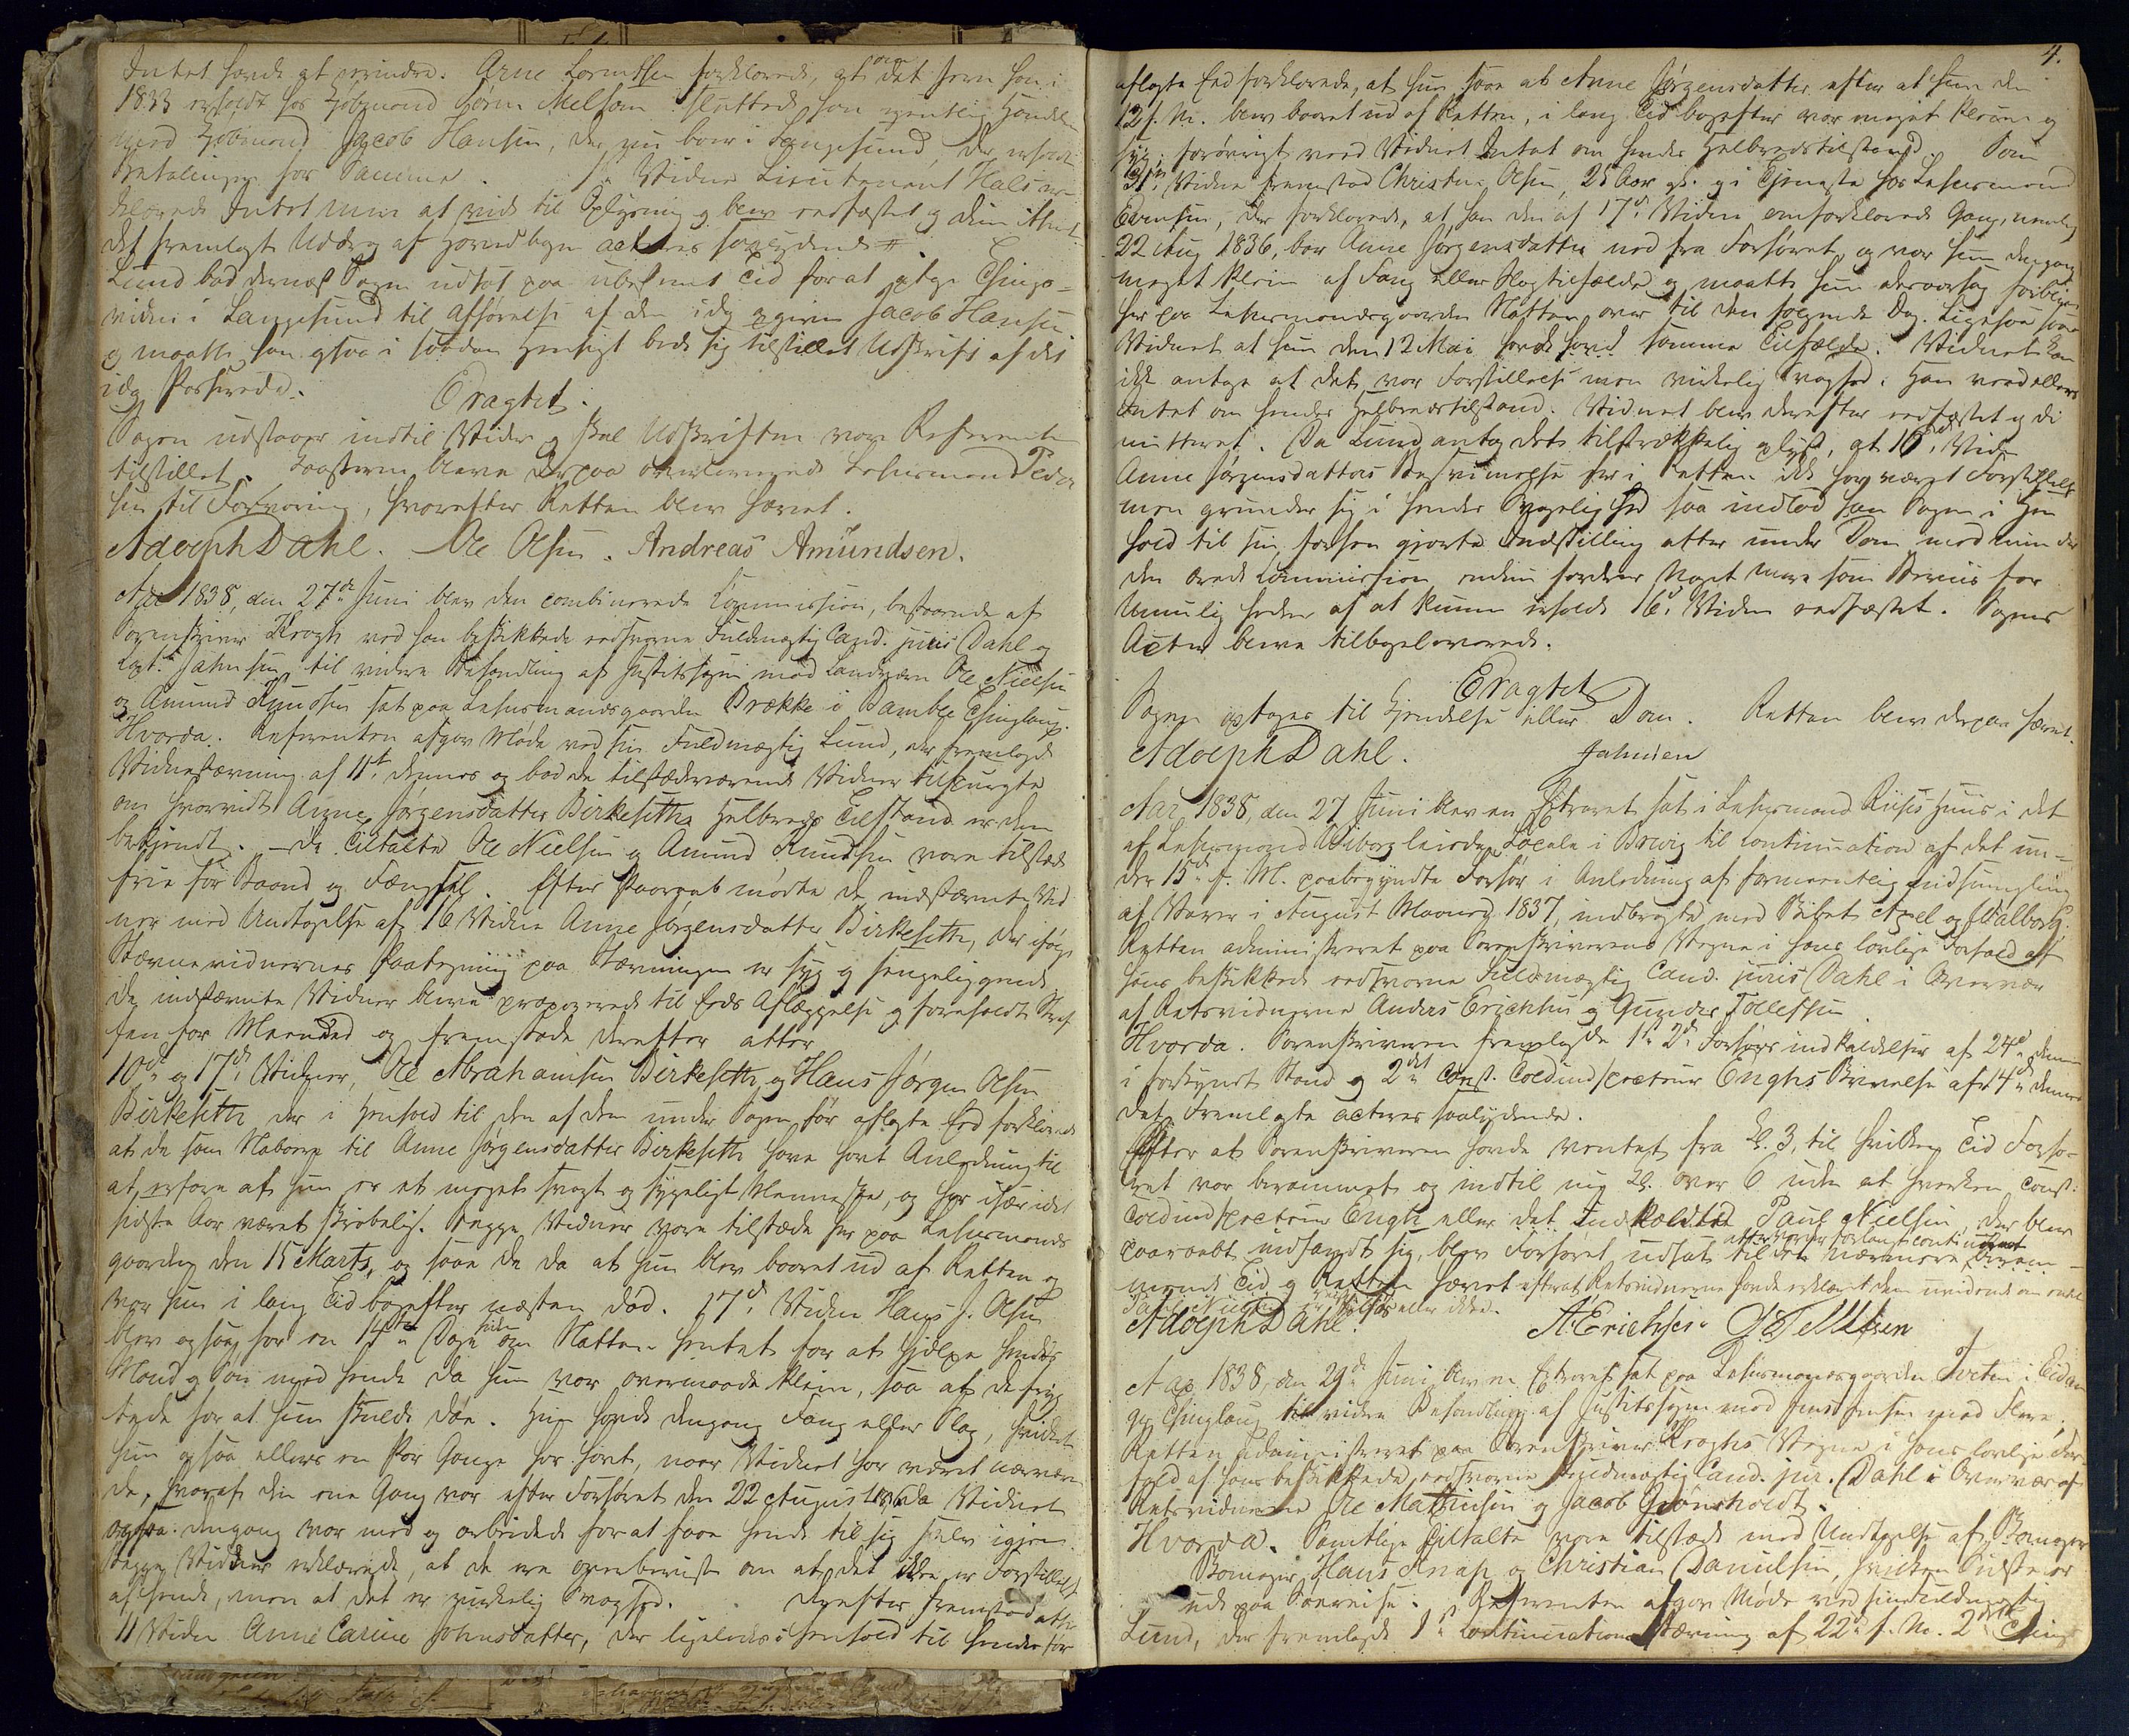 Intet havde at erindre. Arne Lorentsen forklarede, at om det Jern han i
1833 erholdt hos Kjøbmand Jørn Melsom sluttede han egentlig Handelen
med Kjøbmand Jacob Hansen, der nu boer i Langesund, der erholdt
Betalingen for Samme. Vidne Lieutenant Hals er-
klærede Intet mere at vide til Oplysning og blev eedfæstet og dimitteret.
Det fremlagte Uddrag af Hovedbogen acteres saalydende #.
Lund bad dernæst Sagen udsat paa ubestemt Tid for at optage Things-
vidne i Langesund til Afhørelse af den idag opgivne Jacob Hansen
og maatte han ogsaa i saadan Hensigt bede sig tilstillet Udskrift af det
idag Passerede.
Eragtet.
Sagen udstaaer indtil Videre og skal Udskriften vorde Referenten
tilstillet. Kosterne bleve derpaa overleverede Lehnsmand Peder
sen til Forvaring, hvorefter Retten blev hævet.
Adolph Dahl. Ole Olsen. Andreas Amundsen.
Aar 1838, den 27de Juni blev den combinerede Commission, bestaaende af
Sorenskriver Krogh ved han beskikkede eedsvorne Fuldmægtig Cand. juris Dahl og
Cpt. Jahnsen til videre Behandling af Justitssagen mod Landværn Ole Nielsen
og Amund Knudsen sat paa Lehnsmandsgaarden Brække i Bamble Thinglaug.
Hvorda. Referenten afgav Møde ved sin Fuldmægtig Lund, der fremlagde
Vidnestævning af 11te dennes og bad de tilstedeværende Vidner tilspurgte
om hvorvidt Anne Jørgensdatter Birkeseths Helbreds Tilstand er dem
bekjendt. — De Tiltalte Ole Nielsen og Amund Knudsen vare tilstede
frie for Baand og Fængsel. Efter Paaraab mødte de indstævnte Vid
ner med Undtagelse af 16 Vidne Anne Jørgensdatter Birkeseth, der ifølge
Stævnevidnernes Paategning paa Stævningen er syg og sengeliggende.
De indstævnte Vidner bleve præparerede til Eeds Aflæggelse og foreholdt Straf
fen for Meeneed og fremstode derefter atter
10de og 17de Vidner, Ole Abrahamsen Birkeseth, og Hans Jørgen Olsen
Birkeseth der i Henhold til den af dem under Sagen før aflagte Eed forklarede
at de som Naboer til Anne Jørgensdatter Birkeseth have havt Anledning til
at erfare at hun er et meget svagt og sygeligt Menneske, og har især i det
sidste Aar været skrøbelig. Begge Vidner vare tilstede her paa Lehnsmands
gaarden den 15 Marts, og saae de da at hun blev baaret ud af Retten og
var hun i lang Tid bagefter næsten død. 17de Vidne Hans J. Olsen
blev ogsaa for en 14 Dage siden om Natten hentet for at hjelpe hendes
Mand og Søn med hende da hun var overmaade klein, saa at de fryg
tede for at hun skulde døe. Hun havde dengang Fang eller Slag, hvilket
hun ogsaa ellers en Par Gange har havt, naar Vidnet har været nærværen
de, hvoraf den ene Gang var efter Forhøret den 22 August 1836 da Vidnet
ogsaa dengang var med og arbeidede for at faae hende til sig selv igjen.
Begge Vidner erklærede, at de ere overbeviste om at det ikke er Forstillelse
af hende, men at det er virkelig Svaghed. Derefter fremstod atter
11 Vidne Anne Carine Johnsdatter, der ligeledes i Henhold til hendes før
4.
aflagte Eed forklarede, at hun saae at Anne Jørgensdatter efter at hun den
12 f. M. blev baaret ud af Retten, i lang Tid bagefter var meget klein og
syg; forøvrigt veed Vidnet Intet om hendes Helbredstilstand. Som
31te Vidne fremstod Christen Olsen, 25 Aar gl. og i Tjeneste hos Lehnsmand
Edvardsen, der forklarede, at han den af 17de Vidne omforklarede Gang, nemlig
22 Aug 1836, bar Anne Jørgensdatter ned fra Forhøret, og var hun dengang
meget klein af Fang eller Slagtilfælde og maatte hun derover sag forblive
her paa Lehnsmandsgaarden Natten over til den følgende Dag. Ligesaa saae
Vidnet at hun den 12 Mai havde havd samme Tilfælde. Vidnet kan
ikke antage at det var Forstillelse men virkelig Svaghed. Han veed ellers
Intet om hendes Helbredstilstand. Vidnet blev derefter eedfæstet og di
mitteret. Da Lund antog det tilstrækkelig oplyst, at 16de Vidne
Anne Jørgensdatters Besvimelse her i Retten ikke har været Forstillelse
men grunder sig i hendes Svagelighed saa indlod han Sagen i Hen
hold til sin forhen gjorte Indstilling atter under Dom med mindre
den ærede Commission endnu fordrer Noget mere som Beviis for
Umuligheden af at kunne erholde 16de Vidne eedfæstet. Sagens
Acter bleve tilbageleverede.
Eragtet
Sagen optages til Kjendelse eller Dom. Retten blev derpaa hævet.
Adolph Dahl. Jahnsen
Aar 1838, den 27 Juni blev en Extraret sat i Lehnsmand Riises Huus i det
af Lehnsmand Wiborg leiede Locale i Brevig til Continuation af det un-
der 15de f. M. paabegyndte Forhør i Anledning af formeentlig Indsmugling
af Varer i August Maaned 1837, indbragte med Skibet Axel og Walborg.
Retten administreret paa Sorenskriverens Vegne i hans lovlige Forfald af
hans beskikkede eedsvorne Fuldmægtig Cand. juris Dahl i Overvær
af Retsvidnerne Anders Erichsen og Gunder Tollefsen.
Hvorda. Sorenskriveren fremlagde 1ste 2de Forhørsindkaldelser af 24de dennes
i forkyndt Stand og 2det Const. Toldinspecteur Enghs Skrivelse af 4de dennes
Det Fremlagte acteres saalydende.
Efter at Sorenskriveren havde ventet fra Kl. 3, til hvilken Tid Forhø-
ret var berammet og indtil nu Kl. over 6 uden at hverken const.
Toldinspecteur Engh eller det Indkaldte Paul Nielsen, der blev
paaraabt indfandt sig, blev Forhøret udsat til det nærmere beram-
mende Tid og Retten hævet efterat Retsvidnerne havde erklæret dem uvidende om enten
Paul Nielsen er tilsøes eller ikke.
Adolph Dahl. A. Erichsen. G. Tollefsen
Aar 1838, den 29de Juni blev en Extraret sat paa Lehnsmandsgaarden Tveten i Eidan
ger Thinglaug til videre Behandling af Justitssagen mod Jens Jensen med Flere.
Retten administreret paa Sorenskriver Kroghs Vegne i hans lovlige For-
fald af hans beskikkede, eedsvorne Fuldmægtig Cand. jur. Dahl i Overvær af
Retsvidnerne Ole Mathiesen og Jacob Grønsholdt.
Hvorda. Samtlige Tiltalte vare tilstede med Undtagelse af
Hans Knap og Christian Danielsen, hvilken Sidste er
ude paa Søereise. Referenten afgav Møde ved sin Fuldmægtig
Lund, der fremlagde 1ste Continuations Stævning af 22de f. M. 2de Thing